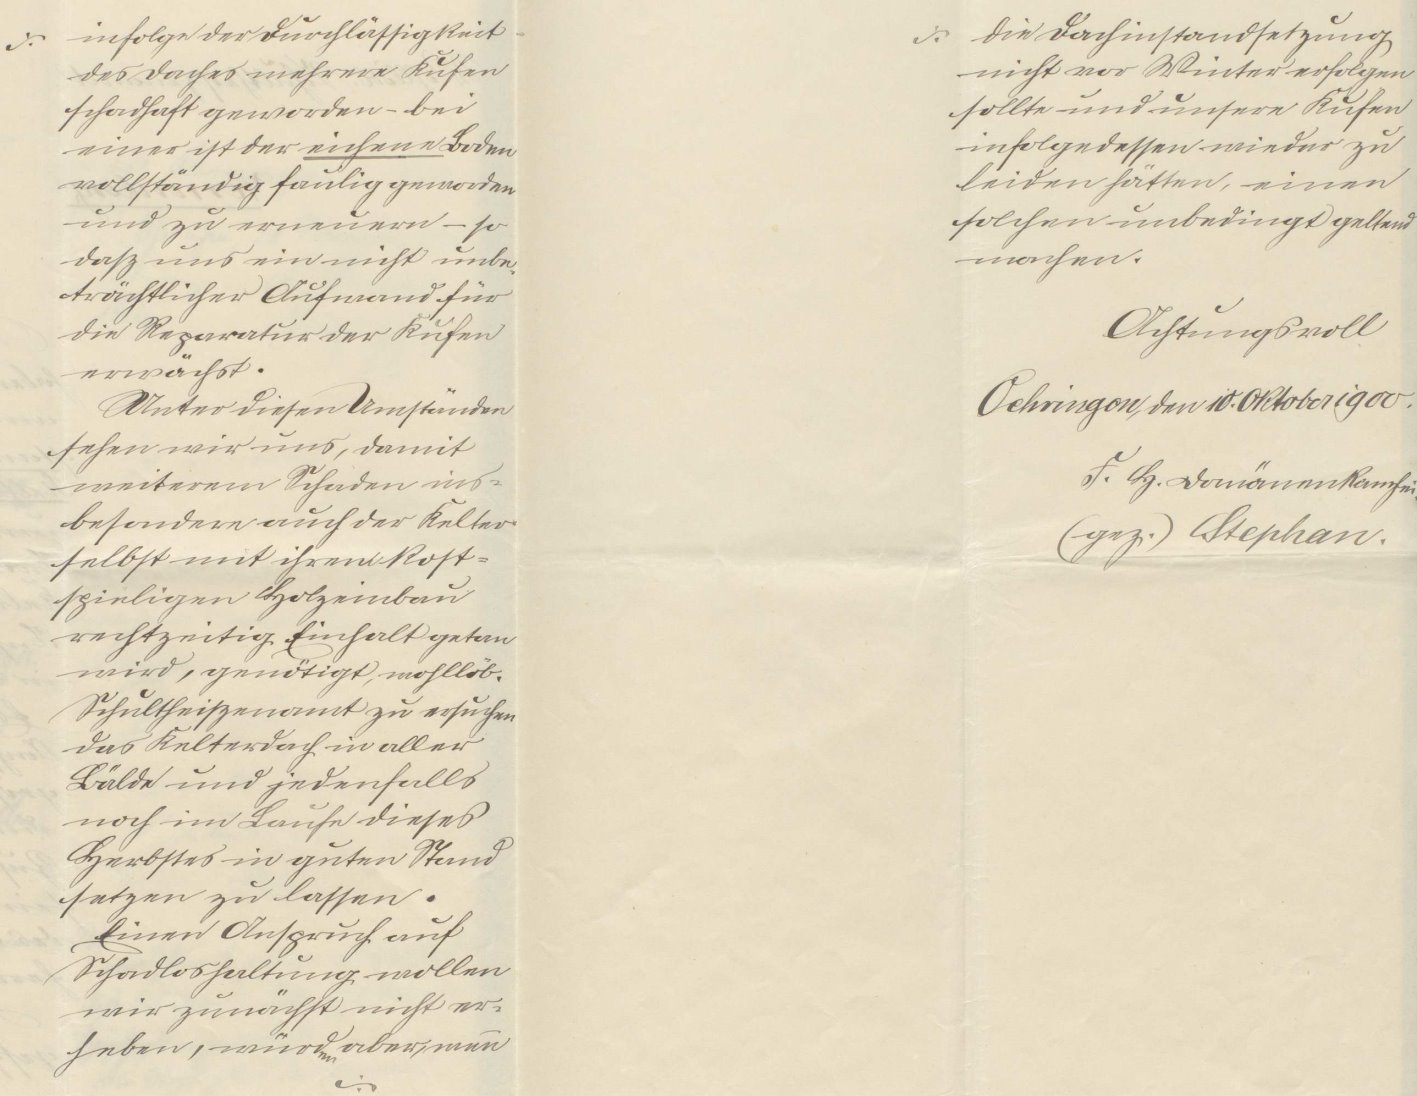 infolge der Durchlässigkeit
des Daches mehrere Kufen
schadhaft geworden – bei
einer ist der eichene Boden
vollständig faulig geworden
und zu erneuern – so
dasz uns ein nicht unbe-
trächtlicher Aufwand für
die Reparatur der Kufen
erwächst.
Unter diesen Umständen
sehen wir uns, damit
weiterem Schaden ins-
besondere auch der Kelter
selbst mit ihrem kost-
spieligen Holzeinbau
rechtzeitig Einhalt getan
wird, genötigt, wohllöb.
Schultheiszenamt zu ersuchen
das Kelterdach in aller
Bälde und jedenfalls
noch im Laufe dieses
Herbstes in guten Stand
setzen zu lassen.
Einen Anspruch auf
Schadloshaltung wollen
wir zunächst nicht er-
heben, würden aber, wenn
die Dachinstandsetzung
nicht vor Winter erfolgen
sollte und unsere Kufen
infolgedessen wieder zu
leiden hätten, einen
solchen unbedingt geltend
machen.
Achtungsvoll
Oehringen, den 10. Oktober 1900.
F. H. Domänenkanzlei.
(gez.) Stephan.